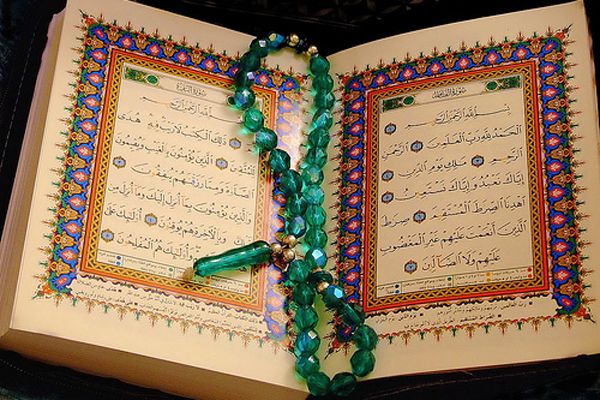 سُورَةُ الفَاتِحَةِ
بِسْمِ اللَّهِ الرَّحْمَٰنِ الرَّحِيمِ
الْحَمْدُ لِلَّهِ رَبِّ الْعَٰلَمِينَ الرَّحْمَٰنِ
الرَّحِيمِ مَٰلِكِ يَوْمِ الدِّينِ
إِيَّاكَ نَعْبُدُ وَإِيَّاكَ نَسْتَعِينُ
اهْدِنَا الصِّرَٰطَ الْمُسْتَقِيمَ صِرَٰطَ
الَّذِينَ أَنْعَمْتَ عَلَيْهِمْ غَيْرِ الْمَغْضُوبِ
عَلَيْهِمْ وَلَا الضَّآلِّينَ
سُورَةُ البَقَرَةِ
بِسْمِ اللَّهِ الرَّحْمَٰنِ الرَّحِيمِ
ذَٰلِكَ الْكِتَٰبُ لَا رَيْبَ فِيهِ هُدًى
الَّذِينَ يُؤْمِنُونَ بِالْغَيْبِ وَيُقِيمُونَ
الصَّلَوٰةَ وَمِمَّا رَزَقْنَٰهُمْ يُنْفِقُونَ
وَالَّذِينَ يُؤْمِنُونَ بِمَا أُنْزِلَ إِلَيْكَ وَمَا أُنْزِلَ مِنْ
وَبِالْآخِرَةِ هُمْ يُوقِنُونَ أُولَٰئِكَ عَلَىٰ
وَأُولَٰئِكَ هُمُ الْمُفْلِحُونَ